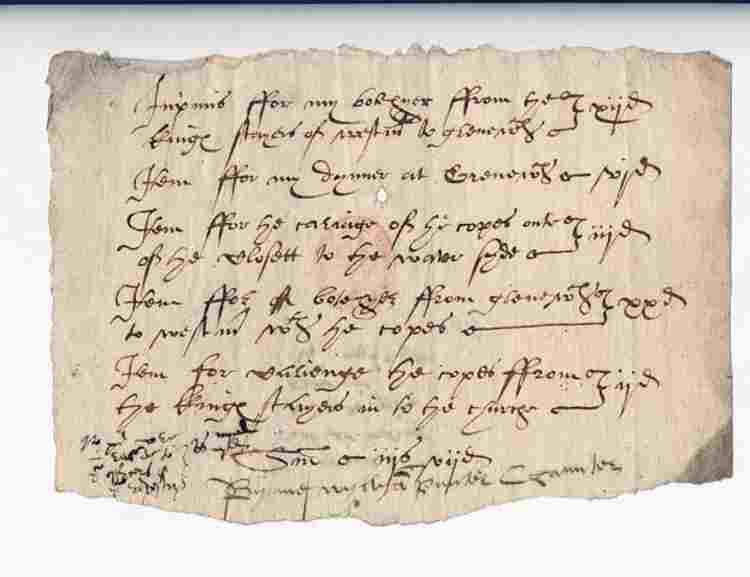 Inpimis ffor my botehyer ffrom the xijd
kings stayers of westm to grenewch
Item ffor my dynner at Grenewch vjd
Item ffor the cariage of the copes oute iiijd
of the closett to the water syde
Item ffor botehyer ffrom grenewch xxd
to westm wth the copes
Item for carienge the copes ffrom ijd
the kings stayers in to the churche
Sm iijs viijd
Chaunter